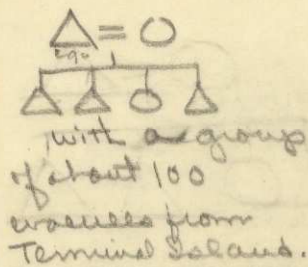 ego
with a group
of about 100
evacuees from
Terminal Island.